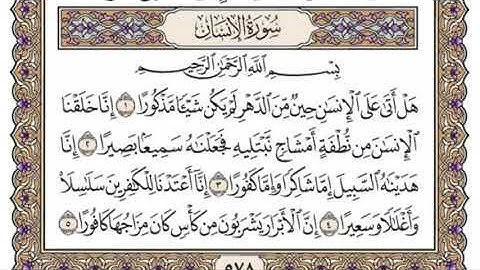 سُورَةُ الإِنسَانِ
بِسْمِ اللَّهِ الرَّحْمَٰنِ الرَّحِيمِ
هَلْ أَتَىٰ عَلَى ٱلْإِنسَٰنِ حِينٌ مِّنَ ٱلدَّهْرِ لَمْ يَكُن شَيْـًٔا مَّذْكُورًا ١ إِنَّا خَلَقْنَا
ٱلْإِنسَٰنَ مِن نُّطْفَةٍ أَمْشَاجٍ نَّبْتَلِيهِ فَجَعَلْنَٰهُ سَمِيعًۢا بَصِيرًا ٢ إِنَّا
هَدَيْنَٰهُ ٱلسَّبِيلَ إِمَّا شَاكِرًا وَإِمَّا كَفُورًا ٣ إِنَّآ أَعْتَدْنَا لِلْكَٰفِرِينَ سَلَٰسِلَا۟
وَأَغْلَٰلًا وَسَعِيرًا ٤ إِنَّ ٱلْأَبْرَارَ يَشْرَبُونَ مِن كَأْسٍ كَانَ مِزَاجُهَا كَافُورًا ٥
٥٧٨